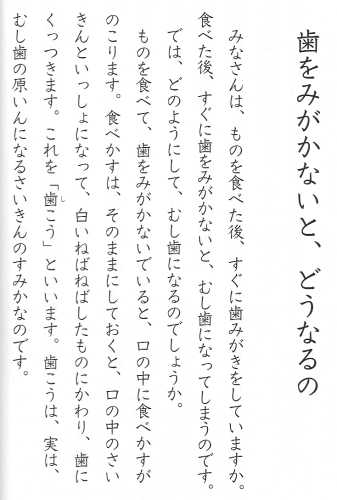 歯をみがかないと、どうなるの
みなさんは、ものを食べた後、すぐに歯みがきをしていますか。
食べた後、すぐに歯をみがかないと、むし歯になってしまうのです。
では、どのようにして、むし歯になるのでしょうか。
ものを食べて、歯をみがかないでいると、口の中に食べかすが
のこります。食べかすは、そのままにしておくと、口の中のさい
きんといっしょになって、白いねばねばしたものにかわり、歯に
くっつきます。これを「歯こう」といいます。歯こうは、実は、
むし歯の原いんになるさいきんのすみかなのです。
し